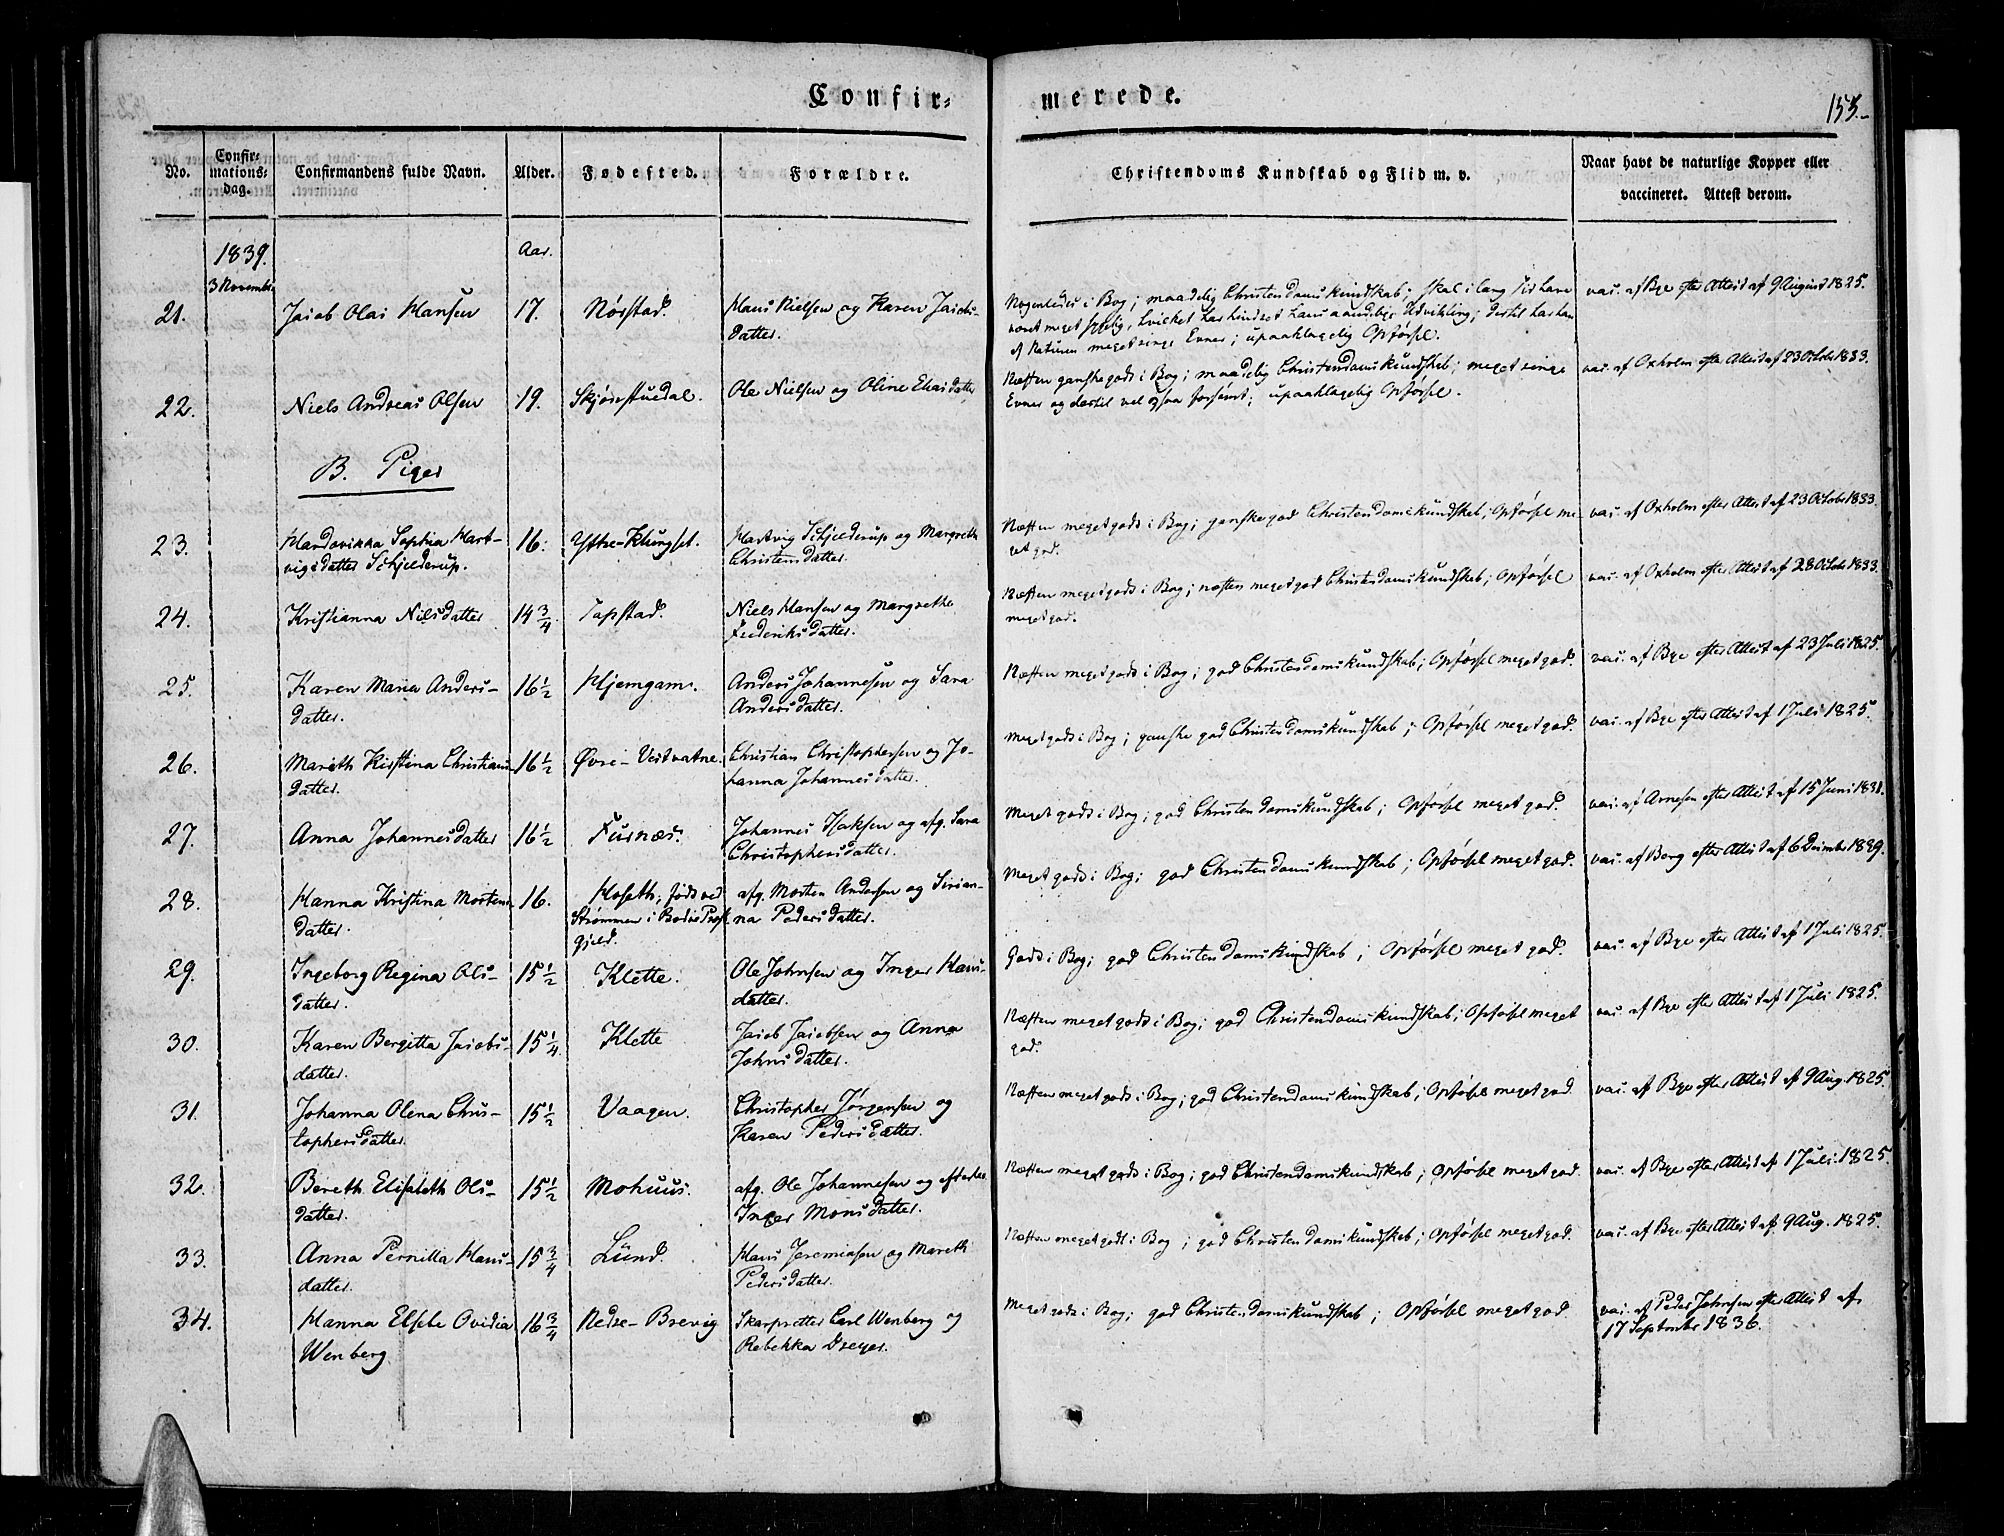 Confir= merede.
155.
No. Confir-mations-dag. Confirmandens fulde Navn. Alder. Fødested. Forældre. Christendoms Kundskab og Flid m. v. Naar havt de naturlige Kopper eller vaccineret. Attest derom.
1839. Aar.
3 Novembr
21. Jacob Olai Hansen 17. Nørstad. Hans Nielsen og Karen Jacobs-
datter.
Nogenledes i Bog; maadelig Christendomskundskab; skal i lang Tid have
været meget sygelig, hvilket har hindret hans aandelige Udvikling; dertil har han
af Naturen meget ringe Evner; upaaklagelig Opførsel.
vac. af Bye efter Attest af 9 August 1825.
22. Niels Andreas Olsen 19. Skjønstuedal. Ole Nielsen og Oline Eliasdatter
Næsten ganske godt i Bog; maadelig Christendomskundskab; meget ringe
Evner og dertil vel ogsaa forsømt; upaaklagelig Opførsel.
vac. af Oxholm efter Attest af 23 Octobr 1833.
B. Piger
23. Hardovikka Sophia Hart-
vigsdatter Schjelderup. 16. Yttre-Klungset. Hartvig Schjelderup og Margrethe
Christensdatter.
Næsten meget godt i Bog; ganske god Christendomskundskab; Opførsel me-
get god.
vac. af Oxholm efter Attest af 23 Octobr 1833.
24. Kristianna Nilsdatter 14 3/4 Tapstad. Niels Hansen og Margrethe
Frederiksdatter.
Næsten meget godt i Bog; næsten meget god Christendomskundskab; Opførsel
meget god.
vac. af Oxholm efter Attest af 28 Octobr 1833.
25. Karen Maria Anders-
datter. 16 1/2 Hjemgam. Anders Johannesen og Sara
Andersdatter.
Næsten meget godt i Bog; god Christendomskundskab; Opførsel meget god.
vac. af Bye efter Attest af 23 Juli 1825.
26. Mareth Kistina Christians-
datter. 16 1/2 Øvre-Vestvatne. Christian Christophersen og Jo-
hanna Johannesdatter.
Meget godt i Bog; ganske god Christendomskundskab; Opførsel meget god.
vac. af Bye efter Attest af 1 Juli 1825.
27. Anna Johannesdatter 16 1/2 Fusnæs. Johannes Isaksen og afg. Sara
Christophersdatter.
Meget godt i Bog; god Christendomskundskab; Opførsel meget god.
vac. af Arnesen efter Attest af 15 Juni 1831.
28. Hanna Kristina Mortens-
datter. 16. Hoseth; født ved
Strømmen i Bodøe Præst-
gjeld. afg. Morten Andersen og Sirian-
na Pedersdatter.
Meget godt i Bog; god Christendomskundskab; Opførsel meget god.
vac. af Berg efter Attest af 6 December 1839.
29. Ingeborg Regina Ols-
datter. 15 1/2 Klette. Ole Johnsen og Inger Hans-
datter.
Godt i Bog; god Christendomskundskab; Opførsel meget god.
vac. af Bye efter Attest af 1 Juli 1825.
30. Karen Bergitta Jacobs-
datter. 15 1/4. Klette Jacob Jacobsen og Anna
Johnsdatter.
Næsten meget godt i Bog; god Christendomskundskab; Opførsel meget
god.
vac. af Bye efter Attest af 1 Juli 1825.
31. Johanna Olena Chris-
tophersdatter. 15 1/2 Vaagen. Christopher Jørgensen og
Karen Pedersdatter.
Næsten meget godt i Bog; god Christendomskundskab; Opførsel meget god
vac. af Bye efter Attest af 9 Aug. 1825.
32. Bereth Elisabeth Ols-
datter. 15 1/2 Mohuus. afg. Ole Johannesen og efterlev.
Inger Monsdatter.
Næsten meget godt i Bog; god Christendomskundskab; Opførsel meget god.
vac. af Bye efter Attest af 1 Juli 1825.
33. Anna Pernilla Hans-
datter. 15 3/4 Lund. Hans Jeremiasen og Mareth
Pedersdatter.
Næsten meget godt i Bog; god Christendomskundskab; Opførsel meget god.
vac. af Bye efter Attest af 9 Aug. 1825.
34. Hanna Elsebe Ovidia
Wenberg 16 3/4 Nedre-Brevig Skarpretter Carl Wenberg og
Rebekka Dreyer.
Meget godt i Bog; god Christendomskundskab; Opførsel meget god
vac. af Peder Johnsen efter Attest af
17 September 1836.